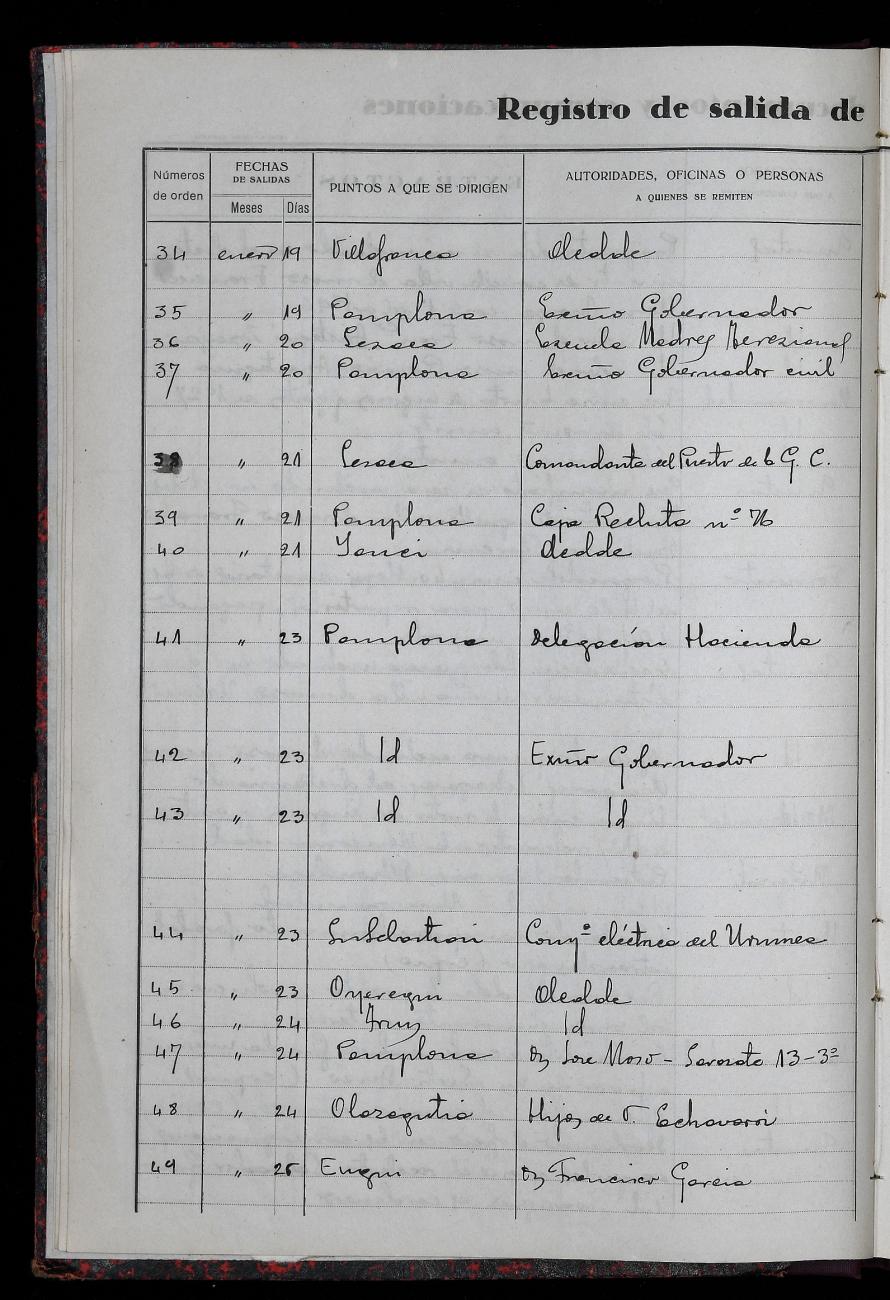 Registro de salida de
Números de orden
FECHAS DE SALIDAS
Meses Días
PUNTOS A QUE SE DIRIGEN
AUTORIDADES, OFICINAS O PERSONAS A QUIENES SE REMITEN
34 enero 19 Villafranca Alcalde
35 " 19 Pamplona Excmo Gobernador
36 " 20 Lesaca Escuela Madres
37 " 20 Pamplona Excmo Gobernador civil
38 " 21 Lesaca Comandante del Puesto de la G. C.
39 " 21 Pamplona Caja Recluta nº 76
40 " 21 Yanci Alcalde
41 " 23 Pamplona Delegación Hacienda
42 " 23 Id Excmo Gobernador
43 " 23 Id Id
44 " 23 Sn Sebastian Compª eléctrica del Urumea
45 " 23 Oyeregui Alcalde
46 " 24 Id
47 " 24 Pamplona Dn Jose 13-3º
48 " 24 Olazagutia Hijos de Echavarri
49 " 25 Eugui Dn Francisco Garcia